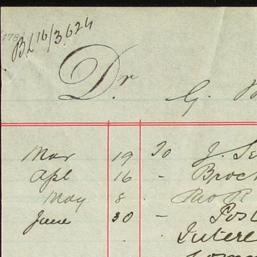 BL16/3.624
Dr
G.
Mar 19 To J. Se
Apl 16 - Brock
May 8 .
June 30 - Post
Intere